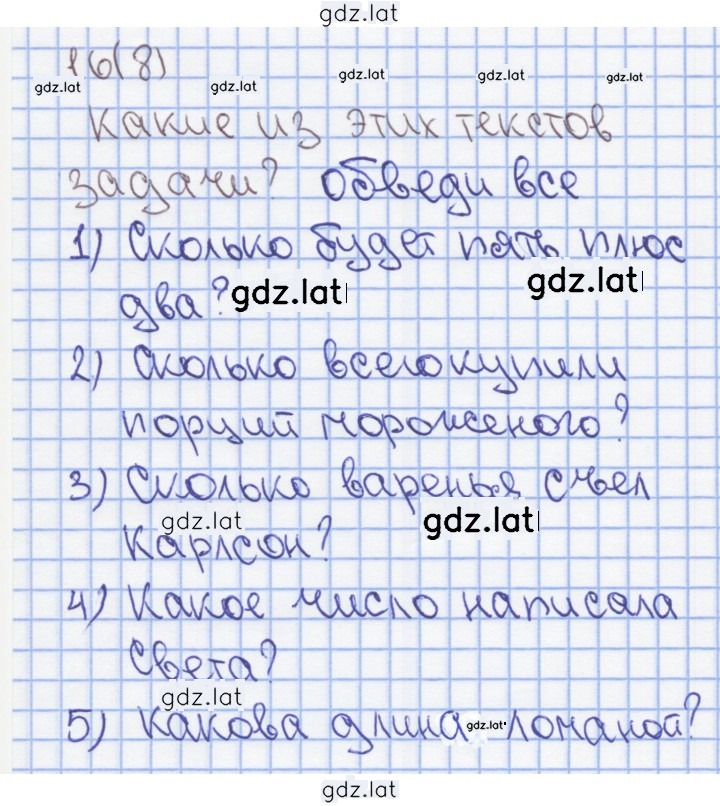 gdz.lat
16(8)
gdz.lat gdz.lat gdz.lat gdz.lat gdz.lat
Какие из этих текстов
задачи? Обведи все
1) Сколько будет пять плюс
два? gdz.lat gdz.lat
2) Сколько всего купили
порций мороженого?
3) Сколько варенья съел
gdz.lat gdz.lat
Карлсон?
4) Какое число написала
Света?
gdz.lat
5) Какова длина gdz.lat ломаной?
gdz.lat